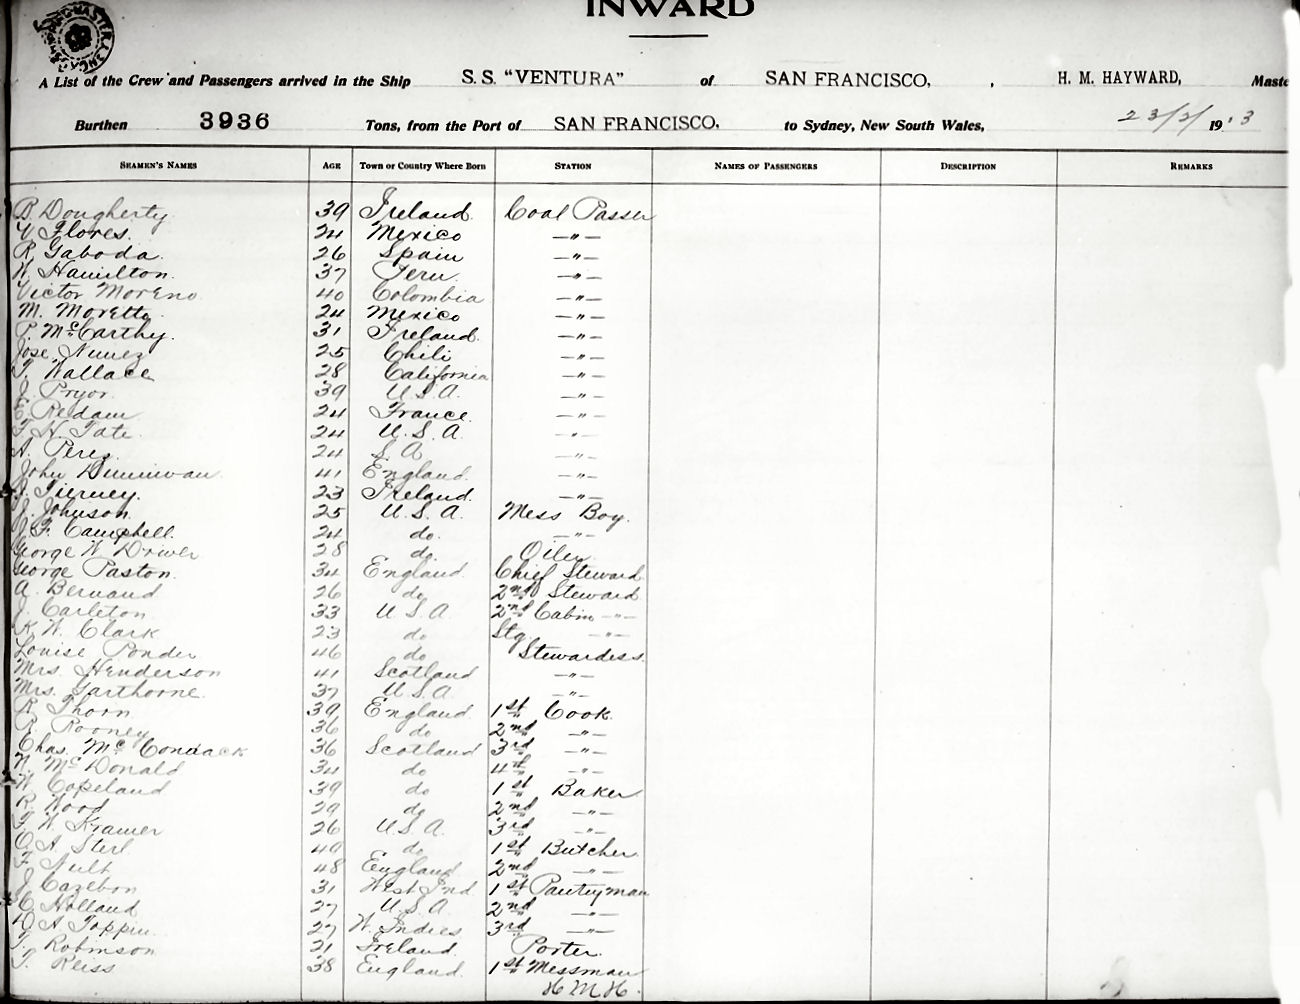 INWARD
A List of the Crew and Passengers arrived in the Ship S. S. "VENTURA" of SAN FRANCISCO, , H. M. HAYWARD, Maste
Burthen 3936 Tons, from the Port of SAN FRANCISCO, to Sydney, New South Wales, 23/2/ 1913
SEAMEN'S NAMES AGE Town or Country Where Born STATION NAMES OF PASSENGERS DESCRIPTION REMARKS
B Dougherty 39 Ireland. Coal Passer
V Flores. 24 Mexico —"—
R Gaboda. 26 Spain —"—
W Hamilton. 37 Peru. —"—
Victor Moreno 40 Colombia —"—
M. Moretto 24 Mexico —"—
P. McCarthy. 31 Ireland. —"—
Jose Nunez 25 Chili —"—
T. Wallace 28 California —"—
J. Pryor. 39 U.S.A. —"—
E Redam 24 France. —"—
T. H. Tate 24 U.S.A. —"—
A. Perez. 24 S A —"—
John 41 England. —"—
J. Tierney. 23 Ireland. —"—
J. Johnson. 25 U.S.A. Mess Boy.
J. F. Campbell. 24 do. —"—
George W. Dower 28 do. Oiler
George Paston. 34 England. Chief Steward
A. Bernaud 26 do 2nd Steward
J. Carleton. 33 U.S.A. 2nd Cabin —"—
K. W. Clark 23 do Stg —"—
Louise Ponder 46 do Stewardess.
Mrs. Henderson 41 Scotland —"—
Mrs. Garthorne. 37 U.S.A. —"—
R Thorn 39 England. 1st Cook.
P. Rooney 36 do 2nd —"—
Chas. Mc Condack 36 Scotland 3rd —"—
N. McDonald 34 do 4th —"—
W Copeland 39 do 1st Baker
R. Wood 29 do 2nd —"—
T. W. Kramer 26 U.S.A. 3rd —"—
O. A. Sterl 49 do 1st Butcher
F. Nult 48 England 2nd —"—
J Cazebon 31 West Ind 1st Pantryman
C Holland 27 U.S.A 2nd —"—
D A Toppin. 27 W. Indies 3rd —"—
T. Robinson 21 Ireland. Porter.
T. Reiss 38 England. 1st Messman
H M H.